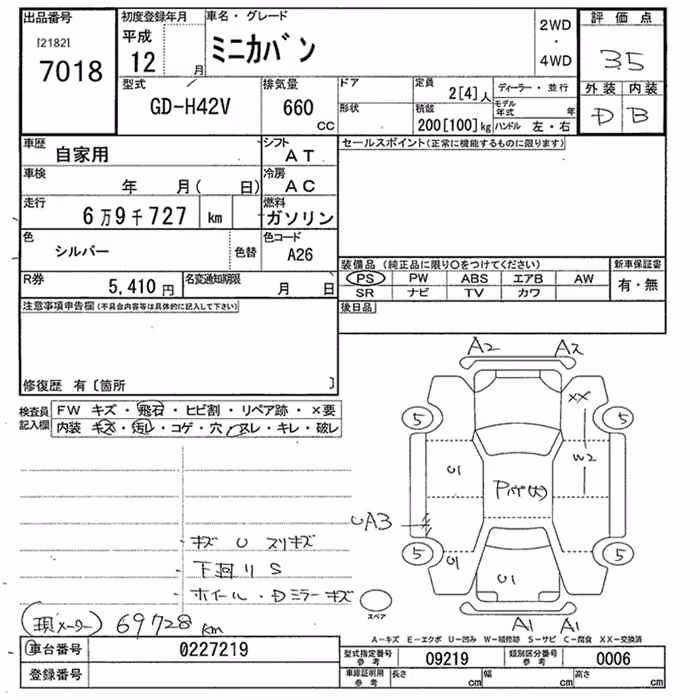 出品番号
[2182]
7018
初度登録年月
平成
12 月
車名・グレード
ミニカバン
2WD
・
4WD
評価点
3.5
外装 内装
D B
型式
GD-H42V
排気量
660
cc
ドア
形状
定員
2[4]人
積載
200[100]kg
ディーラー・並行
モデル年式 年
ハンドル 左・右
車歴
自家用
シフト
AT
車検
年 月( 日)
冷房
AC
走行
6万9千727 km
燃料
ガソリン
色
シルバー
色替
色コード
A26
R券
5,410 円
名変通知期限
月 日
セールスポイント(正常に機能するものに限ります)
装備品 (純正品に限り○をつけてください)
PS PW ABS エアB AW
SR ナビ TV カワ
新車保証書
有・無
後日品
注意事項申告欄(不具合内容等は具体的に記入して下さい)
修復歴 有〔箇所 〕
検査員
記入欄
FW キズ・飛石・ヒビ割・リペア跡・×要
内装 キズ・汚レ・コゲ・穴・スレ・キレ・破レ
キズ U スリキズ
下廻リ S
ホイール・Dミラーキズ
(現メーター) 69728 km
A2 A2
XX
5 5
U1
W2
Pハゲ(大)
UA3
5 5
U1
U1
A1 A1
スペア
A-キズ E-エクボ U-凹み W-補修跡 S-サビ C-腐食 XX-交換済
車台番号
0227219
登録番号
型式指定番号
参考
09219
類別区分番号
参考
0006
車庫証明用
参考
長さ cm
幅 cm
高さ cm